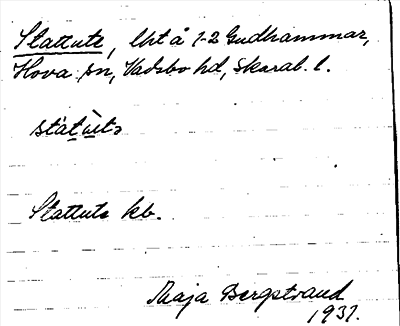 Slattute, lht å 1-2 Gudhammar,
Hova sn, Vadsbo hd, Skarab. l.
Slattute kb.
Maja Bergstrand
1931.